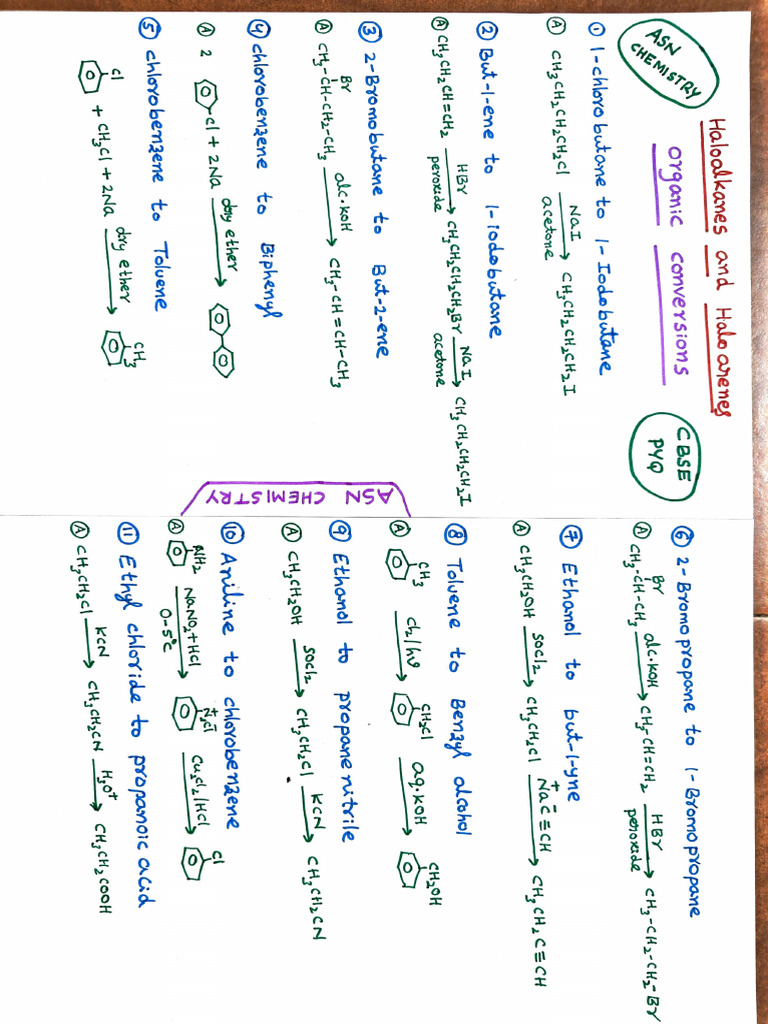 ASN
CHEMISTRY
Haloalkanes and Haloarenes
organic conversions
CBSE
PYQ
① 1-chlorobutane to 1-Iodobutane
Ⓐ CH₃CH₂CH₂CH₂Cl NaI acetone → CH₃CH₂CH₂CH₂I
② But-1-ene to 1-iodobutane
Ⓐ CH₃CH₂CH=CH₂ HBr peroxide → CH₃CH₂CH₂CH₂Br NaI acetone → CH₃CH₂CH₂CH₂I
③ 2-Bromobutane to But-2-ene
Br
Ⓐ CH₃-CH-CH₂-CH₃ alc.KOH → CH₃-CH=CH-CH₃
④ chlorobenzene to Biphenyl
Ⓐ 2 -cl + 2Na dry ether →
⑤ chlorobenzene to Toluene
Cl + CH₃Cl + 2Na dry ether → CH₃
⑥ 2-Bromopropane to 1-Bromopropane
Br
Ⓐ CH₃-CH-CH₃ alc.KOH → CH₃-CH=CH₂ HBr peroxide → CH₃-CH₂-CH₂-Br
⑦ Ethanol to but-1-yne
Ⓐ CH₃CH₂OH SOCl₂ → CH₃CH₂Cl Na⁺C⁻≡CH → CH₃CH₂C≡CH
⑧ Toluene to Benzyl alcohol
Ⓐ CH₃ Cl₂/hν → CH₂Cl aq.KOH → CH₂OH
⑨ Ethanol to propanenitrile
Ⓐ CH₃CH₂OH SOCl₂ → CH₃CH₂Cl KCN → CH₃CH₂CN
⑩ Aniline to chlorobenzene
Ⓐ NH₂ NaNO₂+HCl 0-5°C → N₂⁺Cl⁻ Cu₂Cl₂/HCl → Cl
⑪ Ethyl chloride to propanoic acid
Ⓐ CH₃CH₂Cl KCN → CH₃CH₂CN H₃O⁺ → CH₃CH₂COOH
ASN CHEMISTRY